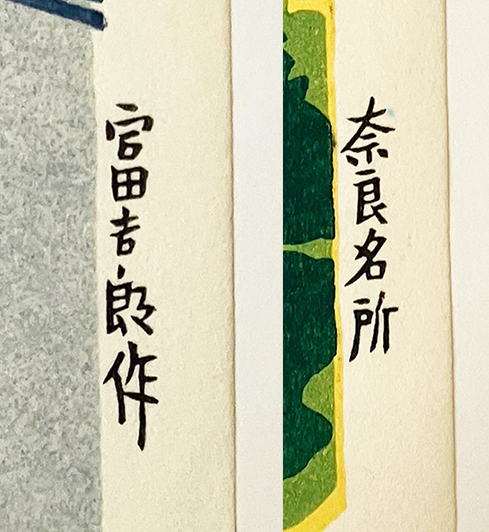 宮田吉郎作
奈良名所